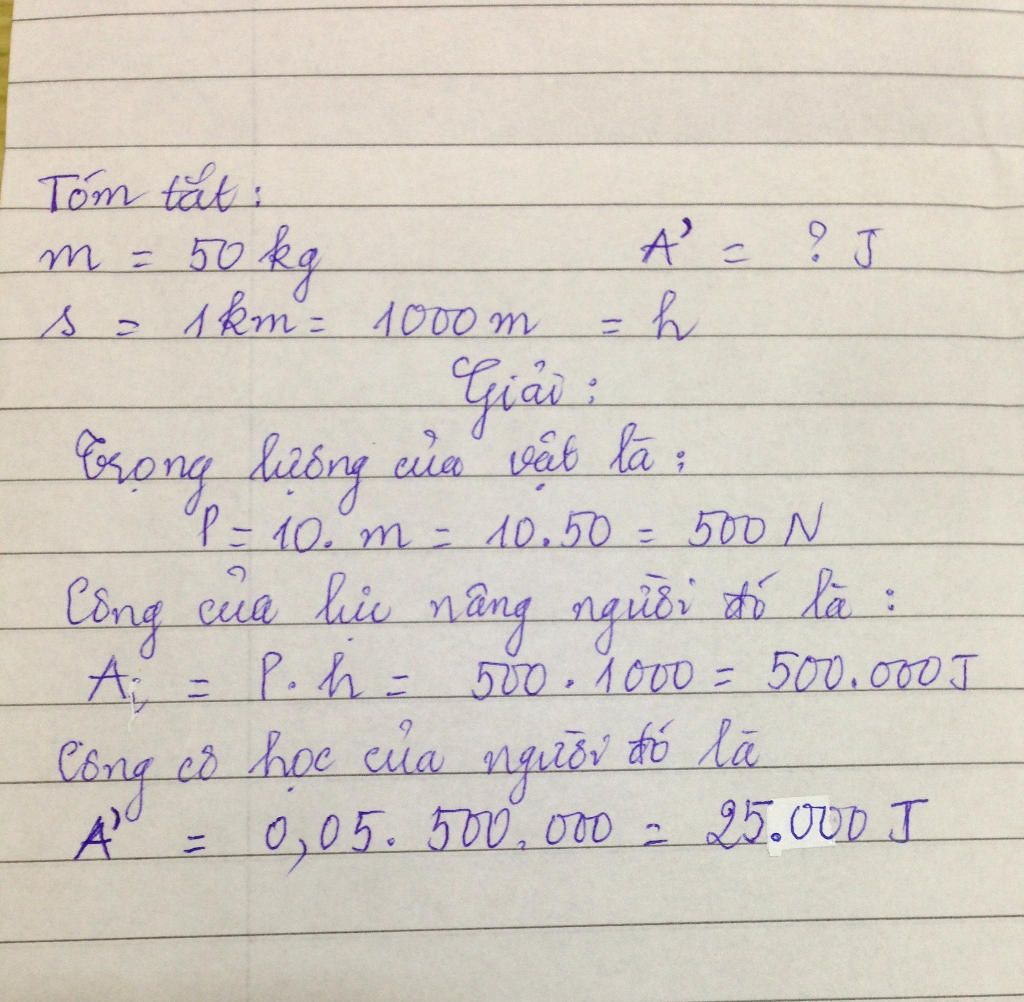 Tóm tắt:
m = 50 kg A' = ? J
s = 1km = 1000 m = h
Giải:
Trọng lượng của vật là:
P = 10. m = 10.50 = 500 N
Công của lực nâng người đó là:
A = P. h = 500 . 1000 = 500.000 J
Công cơ học của người đó là
A' = 0,05. 500.000 = 25.000 J